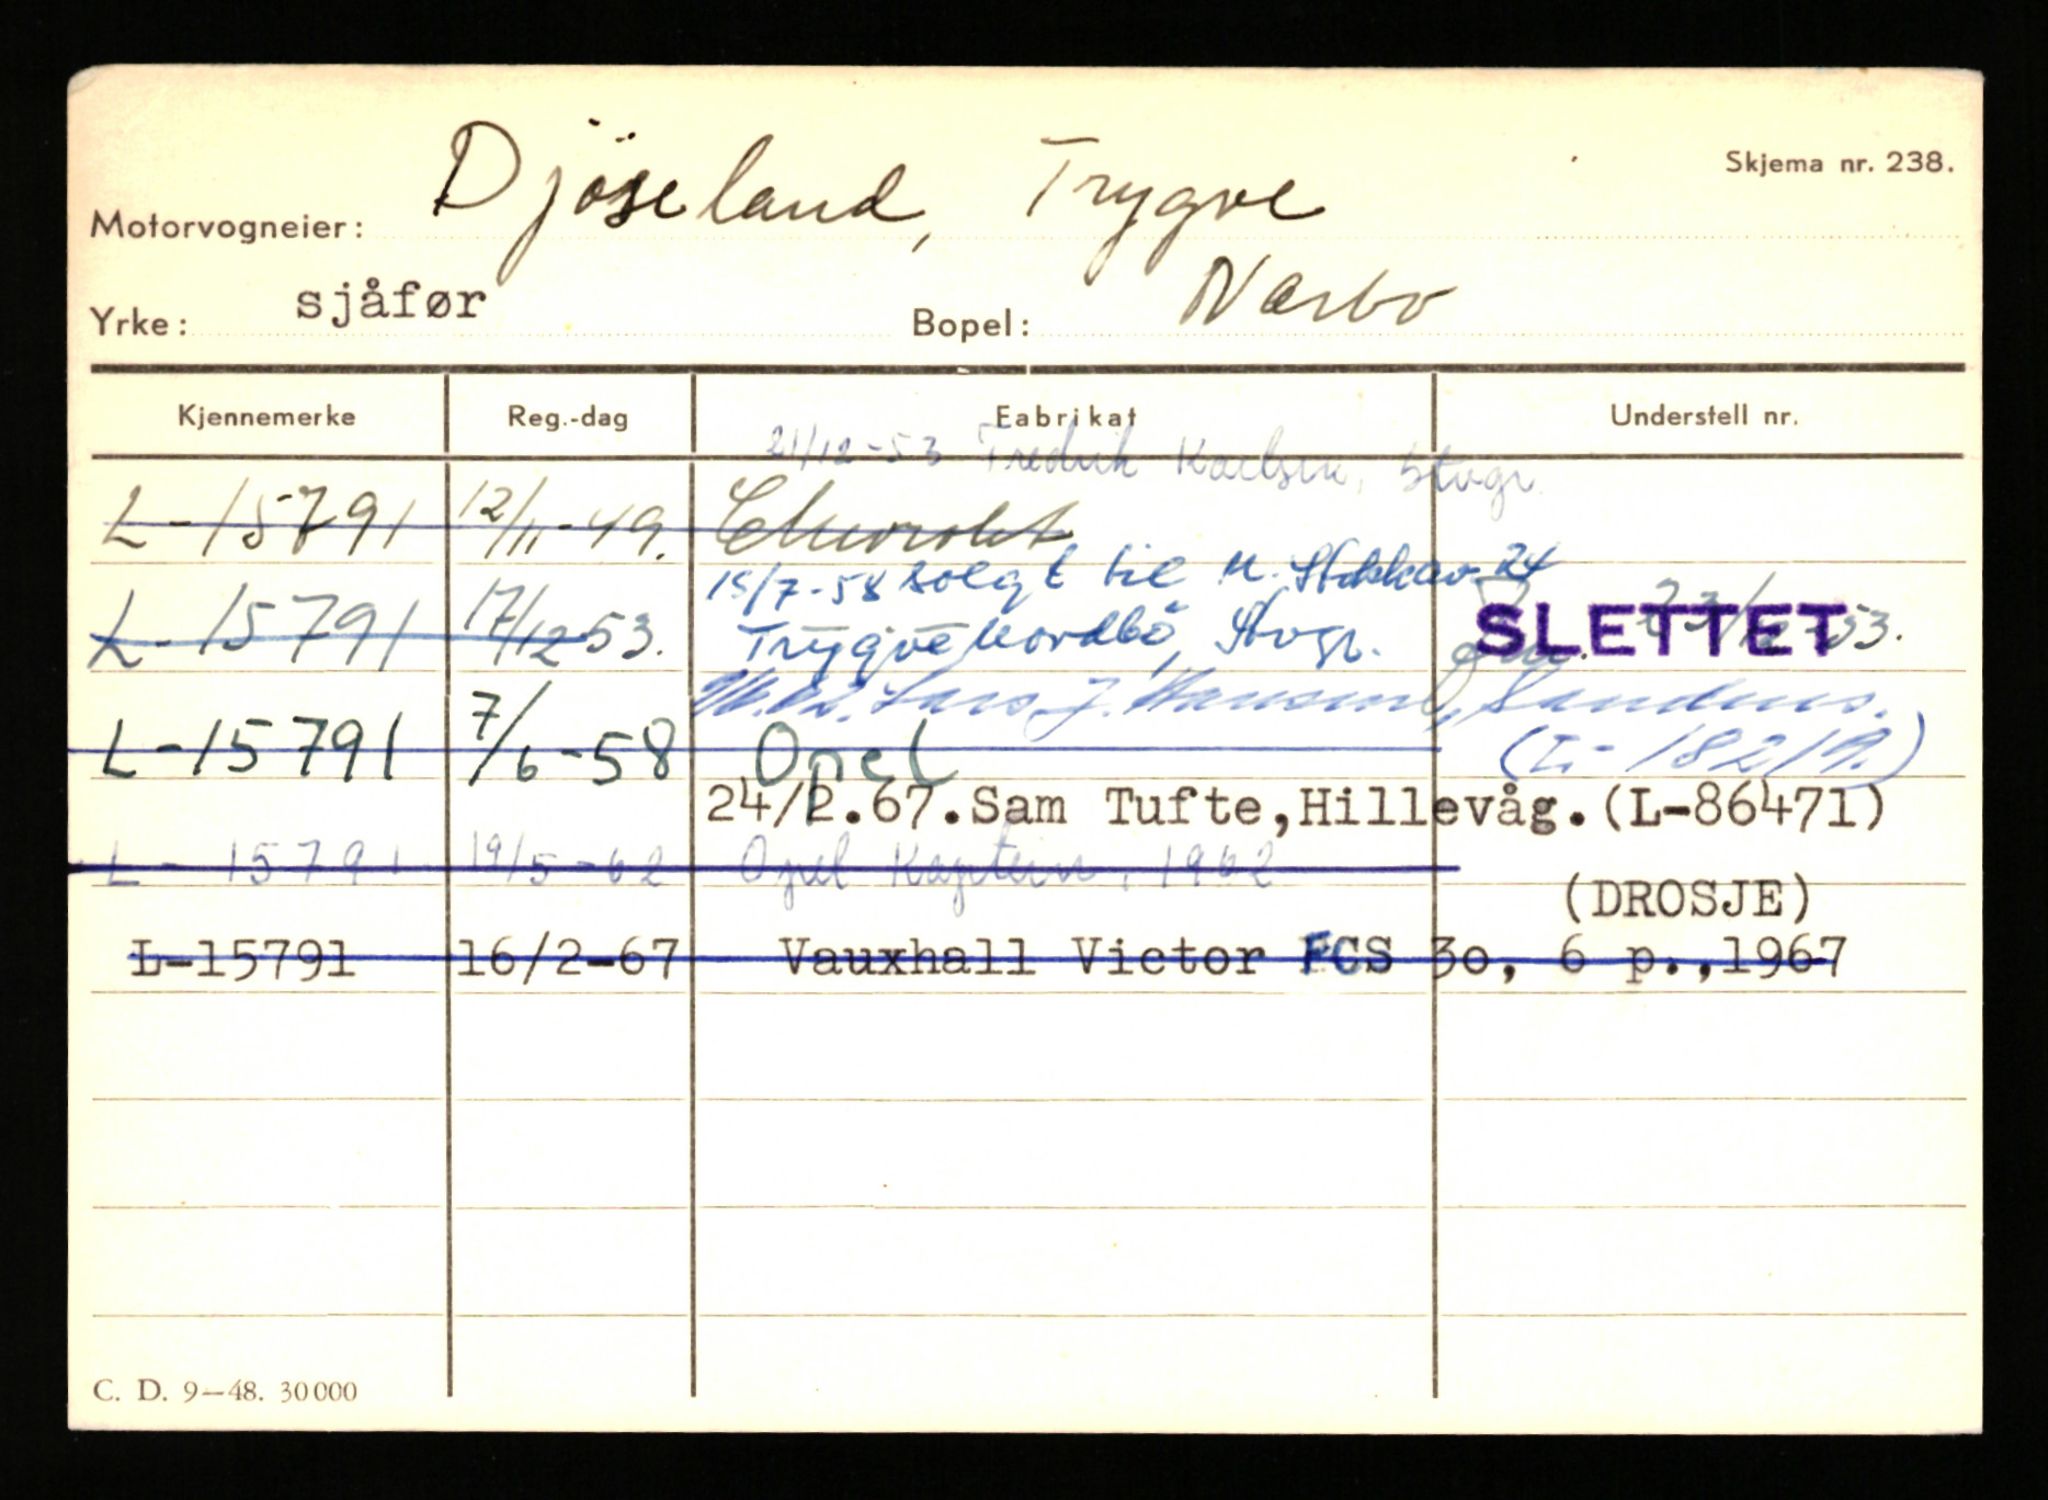 Skjema nr. 238.
Motorvogneier: Djöseland, Trygve
Yrke: sjåfør Bopel: Nærbø
Kjennemerke Reg.-dag Fabrikat Understell nr.
21/12-53 Fredrik Karlsen, Stvgr.
L-15791 12/11-49. Chevrolet
15/7-58 solgt til M. 24
L-15791 17/12 53. Trygve Nordbö, Stvgr. SLETTET 53.
Lars J. Hansen, Sandnes.
L-15791 7/6-58 Opel (L-18219.)
24/2.67.Sam Tufte,Hillevåg.(L-86471)
L-15791 19/5-62 Opel Kaptein, 1962
(DROSJE)
L-15791 16/2-67 Vauxhall Victor FCS 3o, 6 p.,1967
C. D. 9—48. 30000